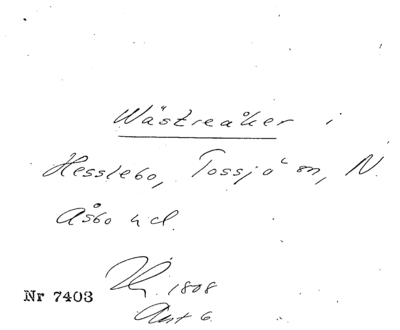 Wästreåker i
Hesslebo, Tossjö sn, N.
Åsbo hd.
1808
Nr 7403
Akt 6.